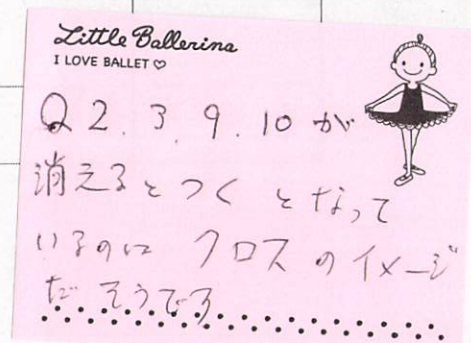 Little Ballerina
I LOVE BALLET♡
Q2.3.9.10が
消えるとつくとなって
いるのは クロスのイメージ
だそうです